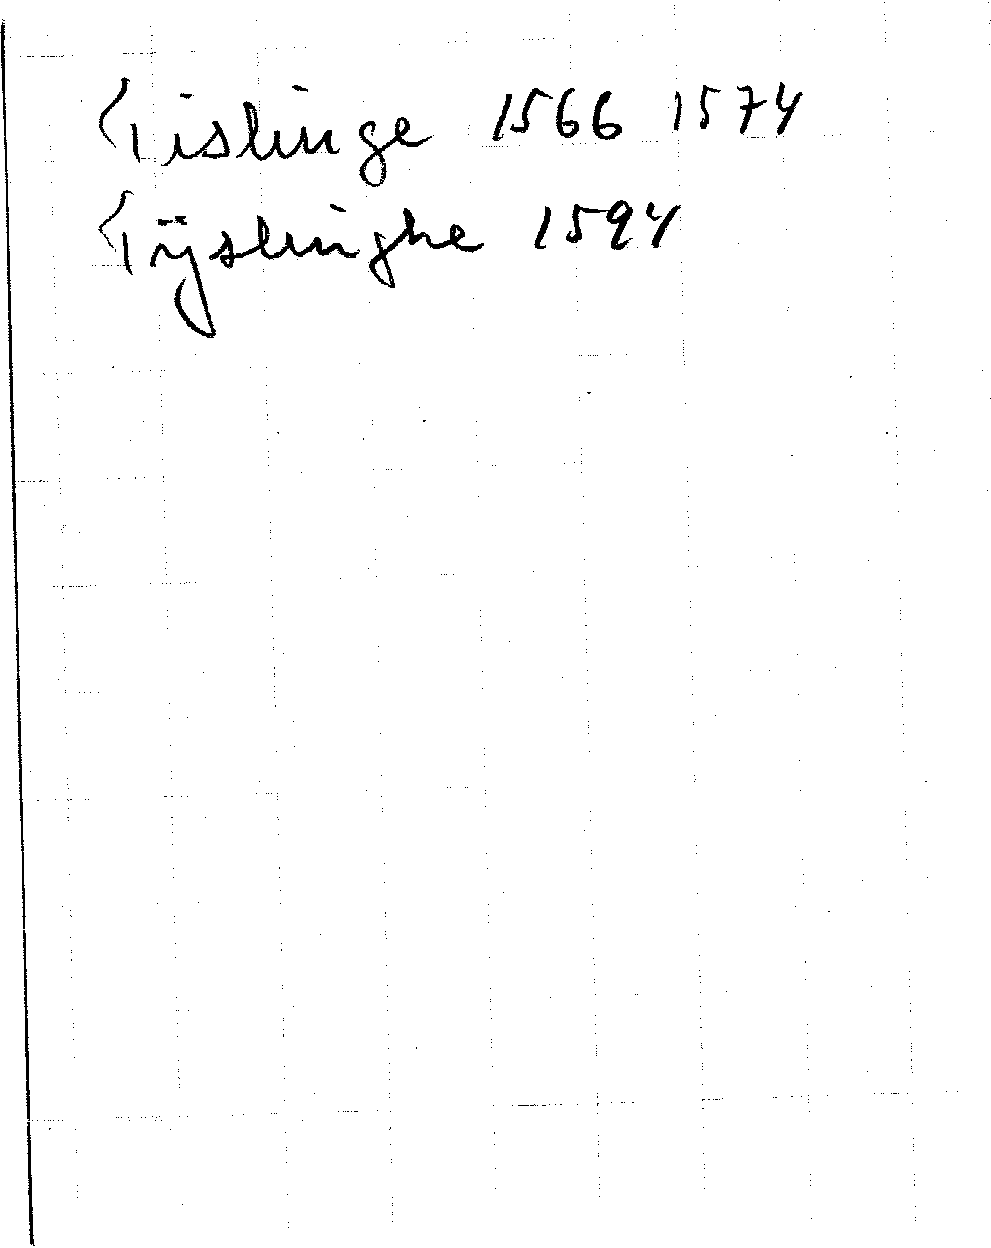 Tislinge 1566 1574
Tÿslinghe 1594